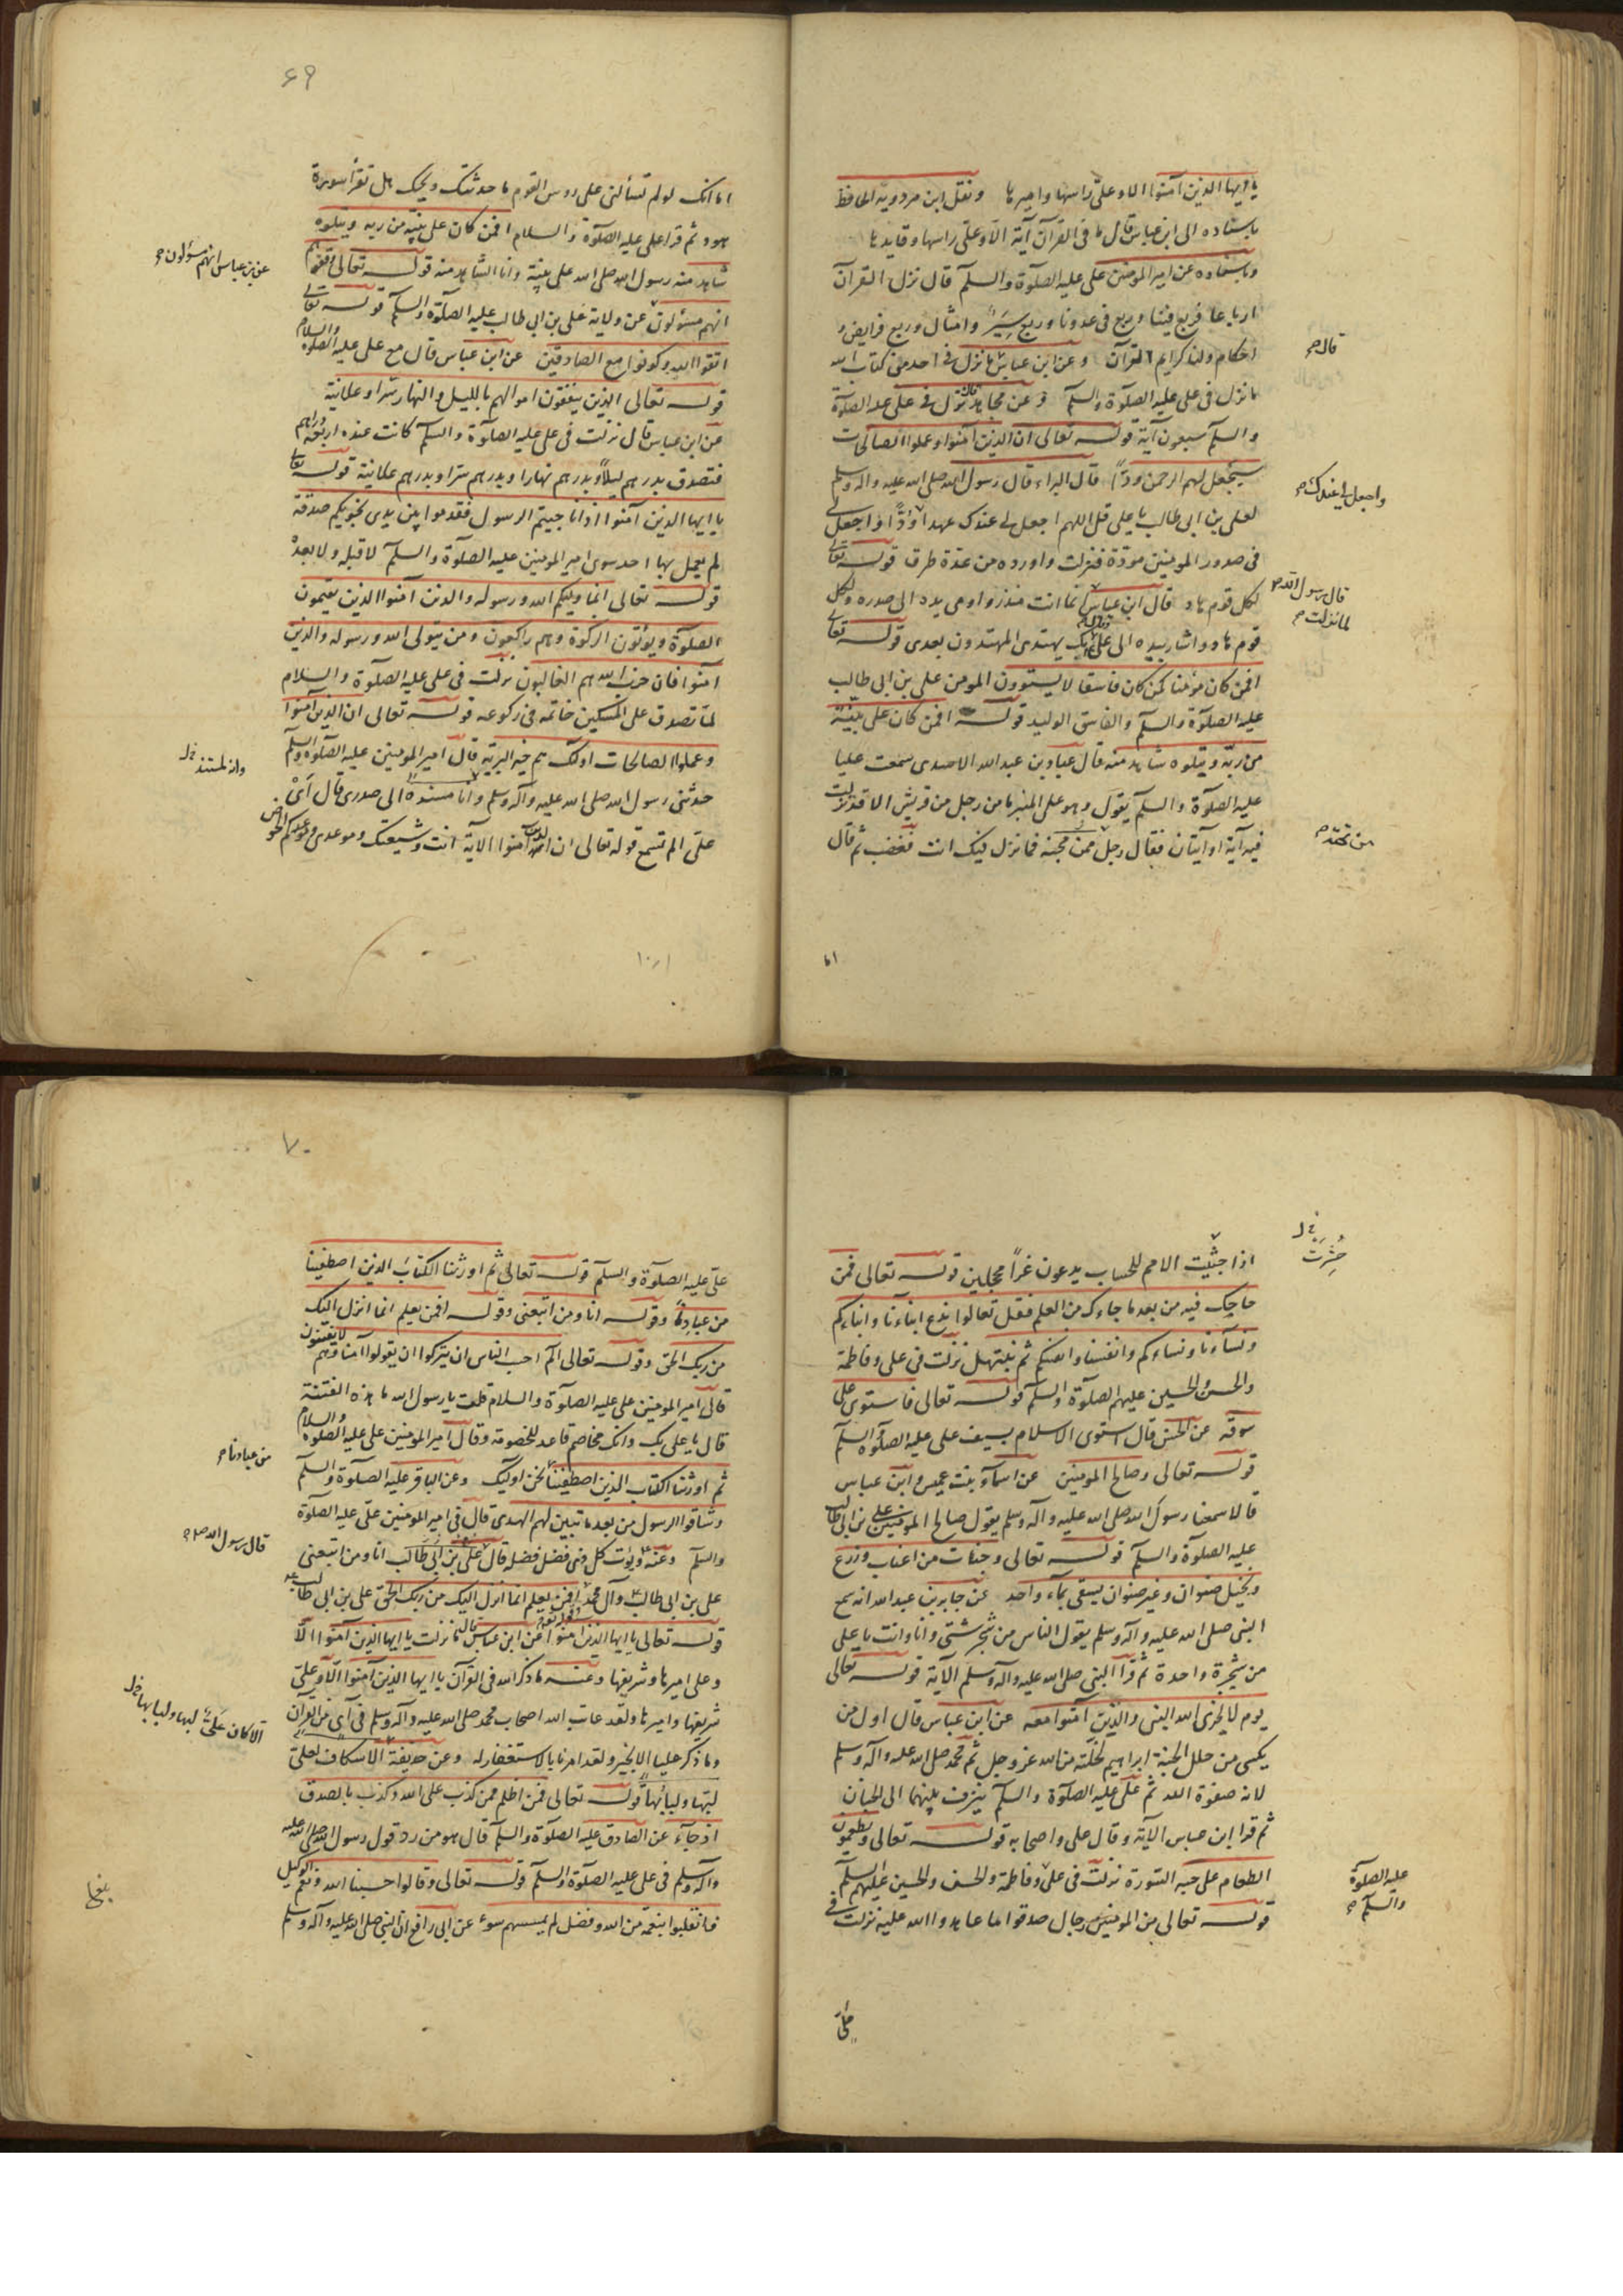 يا ايها الذين آمنوا الا وعلىّ راسها واميرها ونقل ابن مردويه الحافظ
باسناده الى ابن عباس قال ما فى القرآن آية الا وعلىّ راسها وقايدها
وباسناده عن امير المومنين على عليه الصلوة والسلم قال نزل القرآن
ارباعا فربع فينا وربع فى عدونا وربع سِيَرٌ وامثال وربع فرايض و
احكام ولنا كرايم القرآن وعن ابن عباس ما نزل فى احد من كتاب الله
ما نزل فى على عليه الصلوة والسلم وعن مجاهد قال نزل فى على عليه الصلوة
والسلم سبعون آية قوله تعالى ان الذين آمنوا وعملوا الصالحات
سيجعل لهم الرحمن ودّاً قال البراء قال رسول الله صلى الله عليه وآله وسلم
لعلى بن ابى طالب يا على قل اللهم اجعل لى عندك عهدا ودّاً واجعل لى
فى صدور المومنين مودّة فنزلت واورده من عدة طرق قوله تعالى
لكل قوم هاد قال ابن عباس انما انت منذر واومى بيده الى صدره ولكل
قوم هاد واشار بيده الى على بك يهتدى المهتدون بعدى قوله تعالى
افمن كان مؤمنا كمن كان فاسقا لا يستوون المومن على بن ابى طالب
عليه الصلوة والسلم والفاسق الوليد قوله افمن كان على بيّنة
من ربّه ويتلوه شاهد منه قال عباد بن عبد الله الاسدى سمعت عليا
عليه الصلوة والسلم يقول وهو على المنبر ما من رجل من قريش الا قد نزلت
فيه آية او آيتان فقال رجل ممن تحته فما نزل فيك انت فغضب ثم قال
قال صح
واجعل لى عندك صح
قال رسول الله ص
لما نزلت صح
من تحته صح
اما
٦٩
اما انك لو لم تسألنى على روس القوم ما حدثتك ويحك هل تقرأ سورة
هود ثم قرا على عليه الصلوة والسلام افمن كان على بيّنة من ربه ويتلوه
شاهد منه رسول الله صلى الله على بيّنة وانا الشاهد منه قوله تعالى وقفوهم
انهم مسؤلون عن ولاية على بن ابى طالب عليه الصلوة والسلم قوله تعالى
اتقوا الله وكونوا مع الصادقين عن ابن عباس قال مع على عليه الصلوة والسلام
قوله تعالى الذين ينفقون اموالهم بالليل والنهار سرا وعلانية
عن ابن عباس قال نزلت فى على عليه الصلوة والسلم كانت عنده اربعة دراهم
فتصدق بدرهم ليلاً وبدرهم نهارا وبدرهم سرا وبدرهم علانية قوله تعالى
يا ايها الذين آمنوا اذا ناجيتم الرسول فقدموا بين يدى نجويكم صدقة
لم يعمل بها احد سوى امير المومنين عليه الصلوة والسلم لا قبله ولا بعدهُ
قوله تعالى انما وليكم الله ورسوله والذين آمنوا الذين يقيمون
الصلوة ويؤتون الزكوة وهم راكعون ومن يتولى الله ورسوله والذين
آمنوا فان حزب الله هم الغالبون نزلت فى على عليه الصلوة والسلام
لمّا تصدق على المسكين خاتمه فى ركوعه قوله تعالى ان الذين آمنوا
وعملوا الصالحات اولئك هم خير البرية قال امير المومنين عليه الصلوة والسلم
حدثنى رسول الله صلى الله عليه وآله وسلم وانا مسنده الى صدرى قال اَىْ
علىّ الم تسمع قوله تعالى ان الذين آمنوا الآية انت وشيعتك وموعدى وموعدكم الحوض
عن بن عباس انهم مسؤلون صح
وانا لمستند خل
اذا جثيت الامم للحساب يدعون غراً محجلين قوله تعالى فمن
حاجك فيه من بعد ما جاءك من العلم فقل تعالوا ندع ابناءنا وابناءكم
ونساءنا ونساءكم وانفسنا وانفسكم ثم نبتهل نزلت فى على وفاطمة
والحسن والحسين عليهم الصلوة والسلم قوله تعالى فاستوى على
سوقه عن الحسن قال استوى الاسلام بسيف على عليه الصلوة والسلم
قوله تعالى وصالح المومنين عن اسماء بنت عميس وابن عباس
قالا سمعنا رسول الله صلى الله عليه وآله وسلم يقول صالح المومنين على بن ابى طالب
عليه الصلوة والسلم قوله تعالى وجنات من اعناب وزرع
ونخيل صنوان وغير صنوان يسقى بماء واحد عن جابر بن عبد الله انه سمع
النبى صلى الله عليه وآله وسلم يقول الناس من شجر شتى وانا وانت يا على
من شجرة واحدة ثم قرأ النبى صلى الله عليه وآله وسلم الآية قوله تعالى
يوم لا يخزى الله النبى والذين آمنوا معه عن ابن عباس قال اول من
يكسى من حلل الجنة ابراهيم لخلّته من الله عز وجل ثم محمد صلى الله عليه وآله وسلم
لانه صفوة الله ثم على عليه الصلوة والسلم يزف بينهما الى الجنان
ثم قرا ابن عباس الآية وقال على واصحابه قوله تعالى ويطعمون
الطعام على حبه السورة نزلت فى على وفاطمة والحسن والحسين عليهم السلم
قوله تعالى من المومنين رجال صدقوا ما عاهدوا الله عليه نزلت فى
حُشِرَت خل
عليه الصلوة
والسلم صح
علىّ
٧٠
علىّ عليه الصلوة والسلم قوله تعالى ثم اورثنا الكتاب الذين اصطفينا
من عبادنا وقوله انا ومن اتبعنى وقوله افمن يعلم انما انزل اليك
من ربك الحق وقوله تعالى الم احسب الناس ان يتركوا ان يقولوا آمنا وهم لا يفتنون
قال امير المومنين على عليه الصلوة والسلام قلت يا رسول الله ما هذه الفتنة
قال يا على بك وانك مخاصم فاعد للخصومة وقال امير المومنين على عليه الصلوة والسلام
ثم اورثنا الكتاب الذين اصطفينا نحن اولئك وعن الباقر عليه الصلوة والسلم
وشاقوا الرسول من بعد ما تبين لهم الهدى قال فى امير المومنين على عليه الصلوة
والسلم وعنه ويؤت كل ذى فضل فضله قال على بن ابى طالب انا ومن اتبعنى
على بن ابى طالب وآل محمد افمن يعلم انما انزل اليك من ربك الحق على بن ابى طالب
قوله تعالى يا ايها الذين آمنوا عن ابن عباس قال ما نزلت يا ايها الذين آمنوا الّا
وعلى اميرها وشريفها وعنه ما ذكر الله فى القرآن يا ايها الذين آمنوا الّا وعلىّ
شريفها واميرها ولقد عاتب الله اصحاب محمد صلى الله عليه وآله وسلم فى آى من القرآن
وما ذكر عليا الا بخير ولقد امرنا بالاستغفار له وعن حذيفة الا كان لعلىّ
لبّها ولبابها قوله تعالى فمن اظلم ممن كذب على الله وكذب بالصدق
اذ جاءه عن الصادق عليه الصلوة والسلم قال هو من رد قول رسول الله صلى الله عليه
وآله وسلم فى على عليه الصلوة والسلم قوله تعالى وقالوا حسبنا الله ونعم الوكيل
فانقلبوا بنعمة من الله وفضل لم يمسسهم سوء عن ابى رافع ان النبى صلى الله عليه وآله وسلم
من عبادنا صح
قال رسول الله ص صح
الا كان عَلىٌّ لبها ولبابها خل